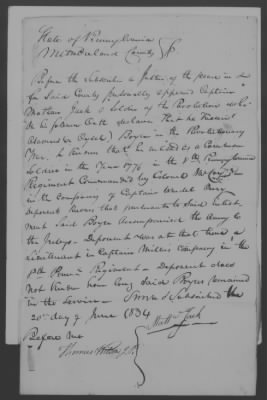 State of Pennsylvania
Westmoreland County } ss
Before the subscriber a Justice of the peace in and
for Said County personally appeared Captain
Matthew Jack a Soldier of the Revolution who
on his solemn Oath declares that he knew
Boyer in the Revolutionary
War. he knows that he enlisted as a Common
Soldier in the Year 1776 in the 8th Pennsylvania
Regiment Commanded by Colonel
in the Company of Captain Wendel Oury
Deponent knows that pursuant to Said enlist-
ment Said Boyer accompanied the Army to
the Jerseys - Deponent was at that time a
Lieutenant in Captain Millers Company in the
8th Penna Regiment - Deponent does
not know how long Said Boyer remained
in the Service - Sworn & Subscribed the
20th day of June 1834
Before me
Matt Jack
Thomas J.P.